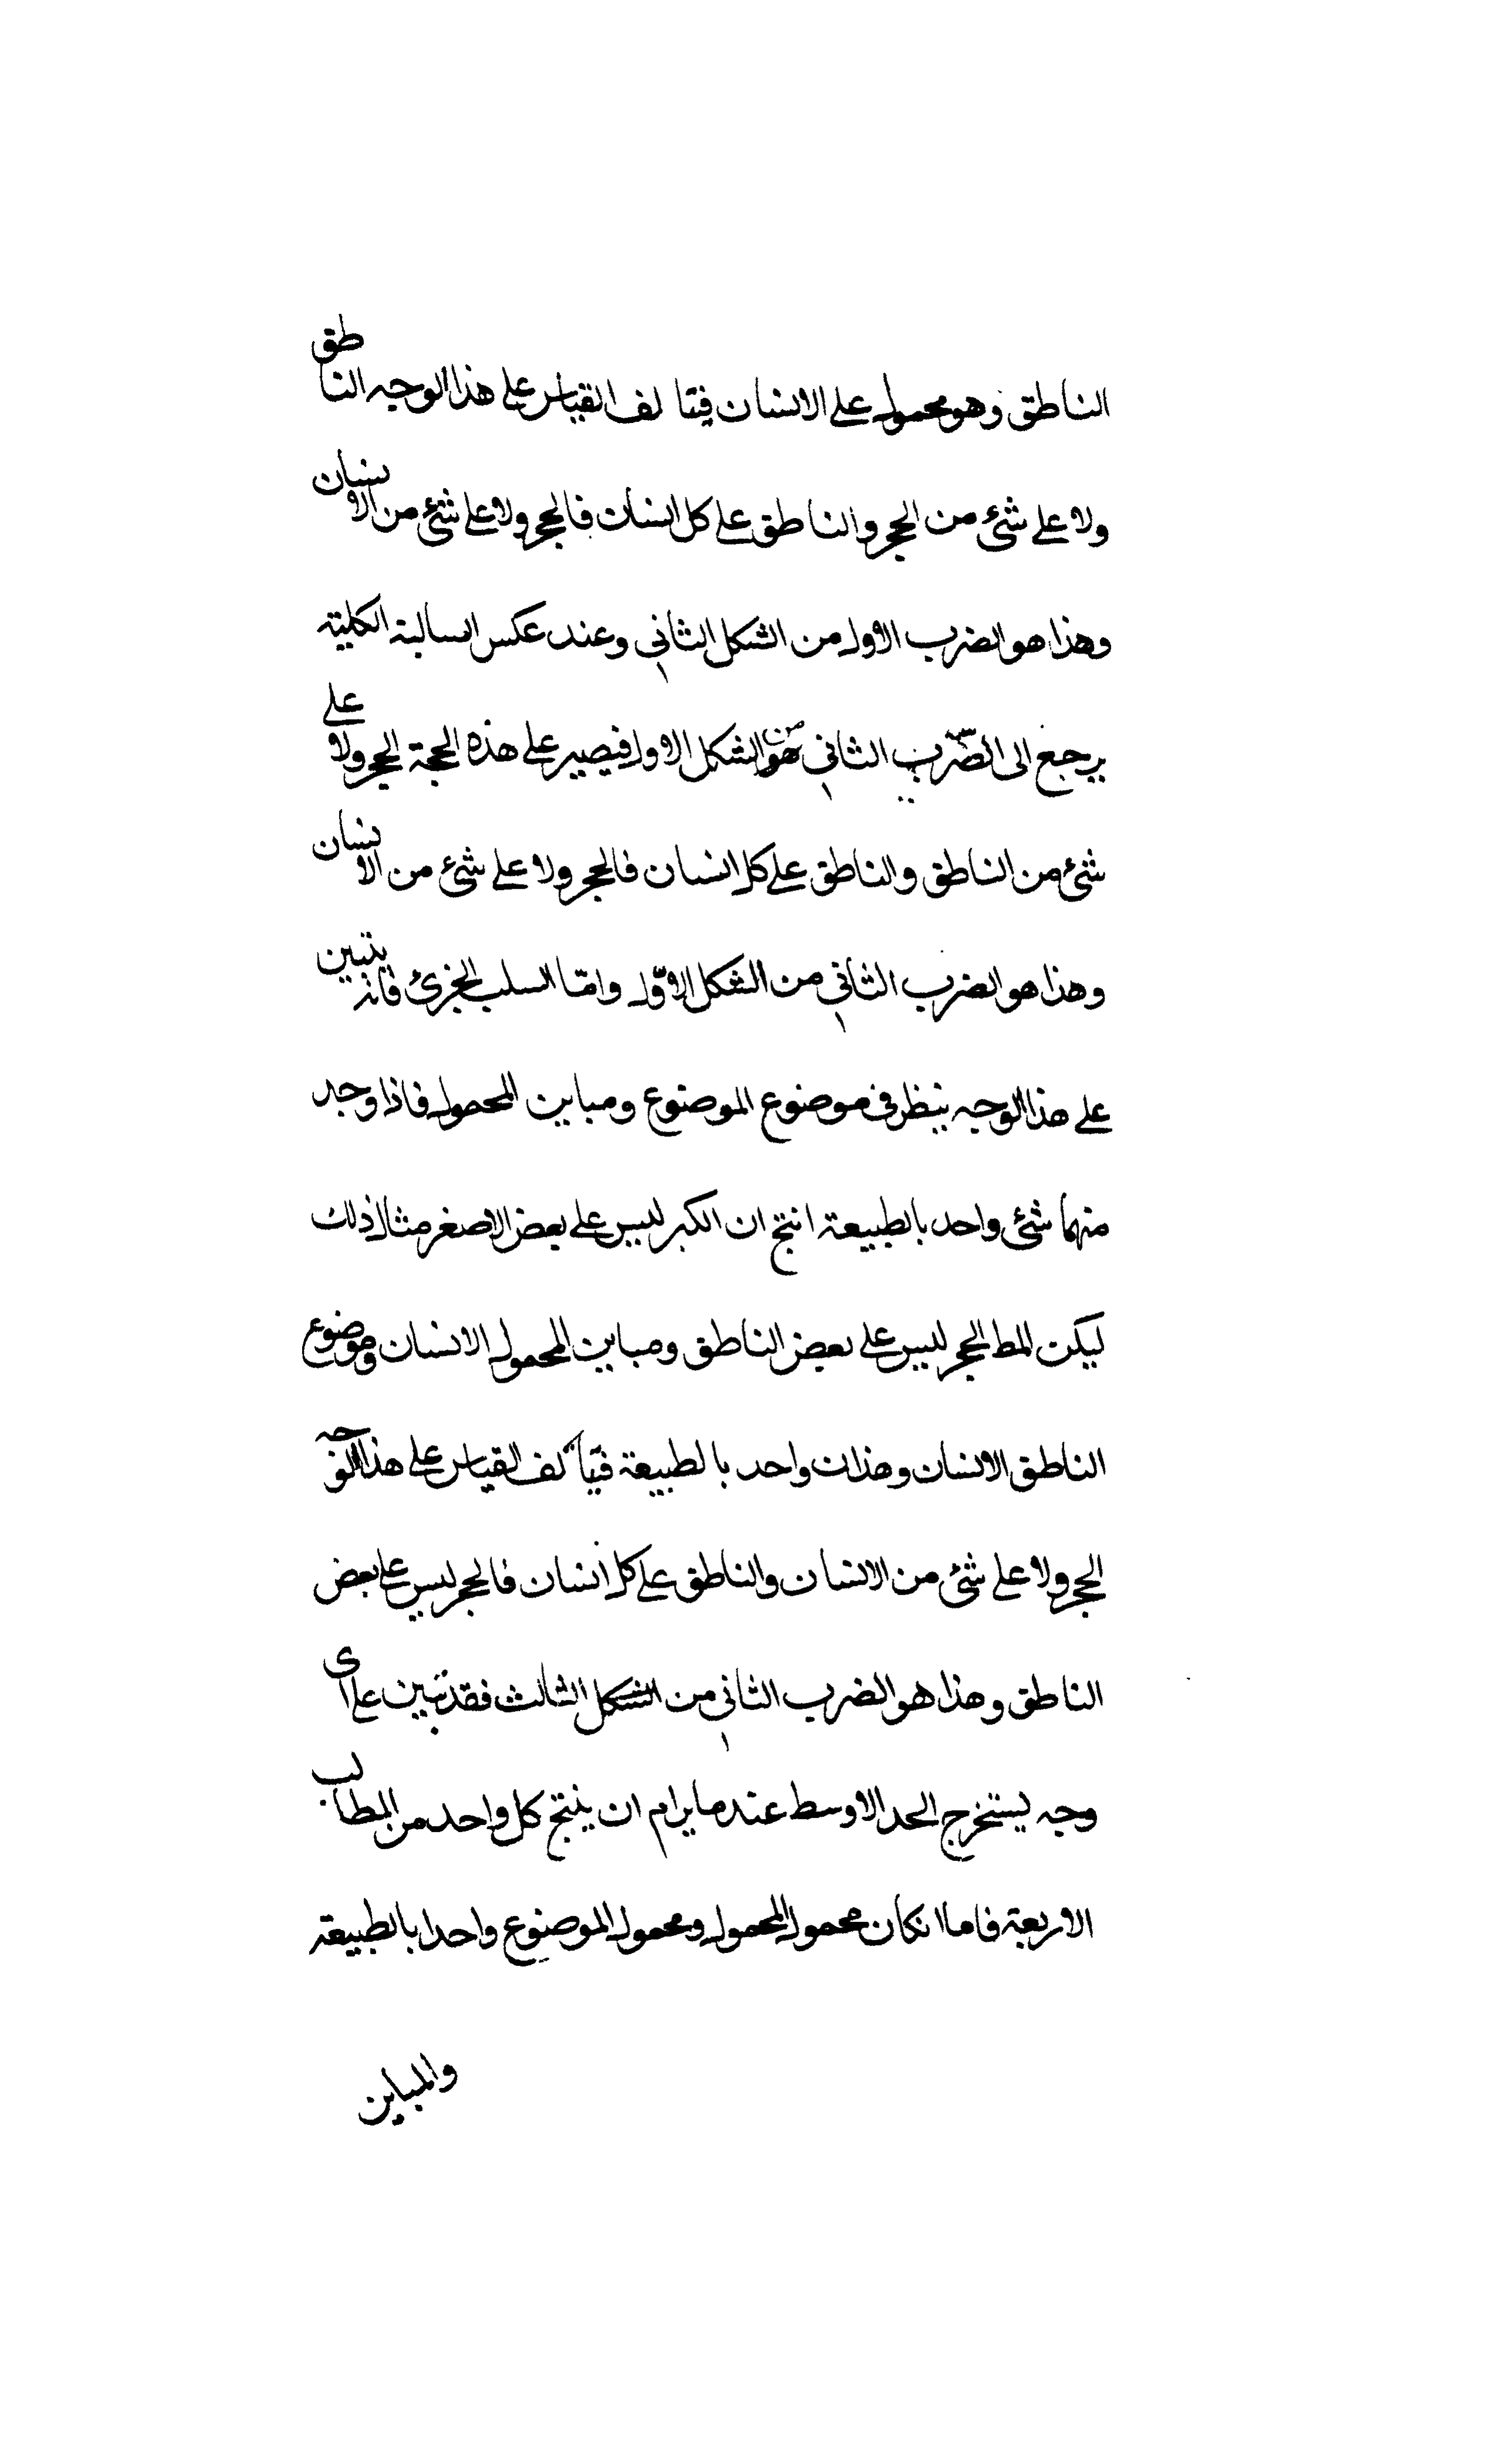 الناطق وهو محمول على الانسان فيتا لف القياس على هذا الوجه الناطق
ولا على شئ من الحجر والناطق على كل انسان فالحجر ولا على شئ من الانسان
وهذا هو الضرب الاول من الشكل الثانى وعند عكس السالبة الكلية
يرجع الى الضرب الثانى من الشكل الاول فيصير على هذه الحجة الحجر ولا على
شئ من الناطق والناطق على كل انسان فالحجر ولا على شئ من الانسان
وهذا هو الضرب الثانى من الشكل الاوّل وامّا السلب الجزئ فانه يتبين
على هذا الوجه ينظر فى موضوع الموضوع ومباين المحمول فاذا وجد
منهما شئ واحد بالطبيعة انتج ان الكبر ليس على بعض الاصغر مثال ذلك
ليكن المط الحجر ليس على بعض الناطق ومباين المحمول الانسان وموضوع
الناطق الانسان وهذان واحد بالطبيعة فيتألف القياس على هذا الوجه
الحجر ولا على شئ من الانسان والناطق على كل انسان فالحجر ليس على بعض
الناطق وهذا هو الضرب الثانى من الشكل الثالث فقد تبين على اى
وجه يستخرج الحد الاوسط عند ما يرام ان ينتج كل واحد من المطالب
الاربعة فاما انكان محمول المحمول ومحمول الموضوع واحدا بالطبيعة
والمباين